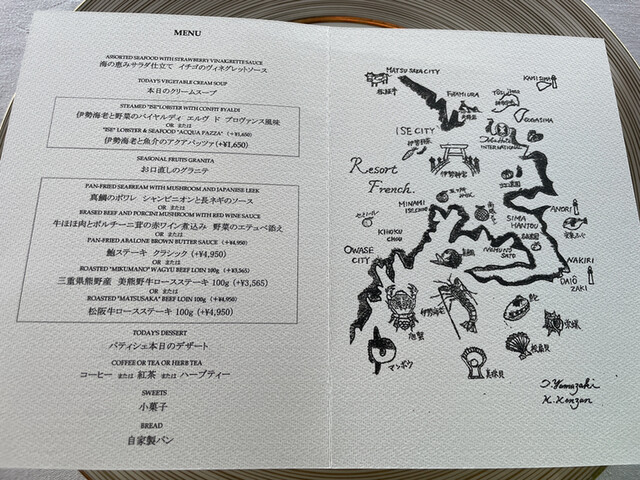 MENU
ASSORTED SEAFOOD WITH STRAWBERRY VINAIGRETTE SAUCE
海の恵みサラダ仕立て イチゴのヴィネグレットソース
TODAY'S VEGETABLE CREAM SOUP
本日のクリームスープ
STEAMED "ISE"LOBSTER WITH CONFIT BYALDI
伊勢海老と野菜のバイヤルディ エルヴ ド プロヴァンス風味
OR または
"ISE" LOBSTER & SEAFOOD "ACQUA PAZZA" (+¥1,650)
伊勢海老と魚介のアクアパッツァ(+¥1,650)
SEASONAL FRUITS GRANITA
お口直しのグラニテ
PAN-FRIED SEABREAM WITH MUSHROOM AND JAPANESE LEEK
真鯛のポワレ シャンピニオンと長ネギのソース
OR または
BRASED BEEF AND PORCINI MUSHROOM WITH RED WINE SAUCE
牛ほほ肉とポルチーニ茸の赤ワイン煮込み 野菜のエテュベ添え
OR または
PAN-FRIED ABALONE BROWN BUTTER SAUCE (+¥4,950)
鮑ステーキ クラシック (+¥4,950)
OR または
ROASTED "MIKUMANO" WAGYU BEEF LOIN 100g (+¥3,565)
三重県熊野産 美熊野牛ロースステーキ 100g (+¥3,565)
OR または
ROASTED "MATSUSAKA" BEEF LOIN 100g (+¥4,950)
松阪牛ロースステーキ 100g (+¥4,950)
TODAY'S DESSERT
パティシェ本日のデザート
COFFEE OR TEA OR HERB TEA
コーヒー または 紅茶 または ハーブティー
SWEETS
小菓子
BREAD
自家製パン
MATSUSAKA CITY
松阪牛
KAMISIMA
FUTAMIURA
TOSIJIMA
SUGASIMA
ISE CITY
INTERNATIONAL
伊勢神宮
Resort
French.
MINAMI
ISECHOU
SIMA
HANTOU
ANORI
KIHOKU
CHOU
OWASE
CITY
NAKIRI
DAIO
ZAKI
伊勢海老
マンボウ
真珠貝